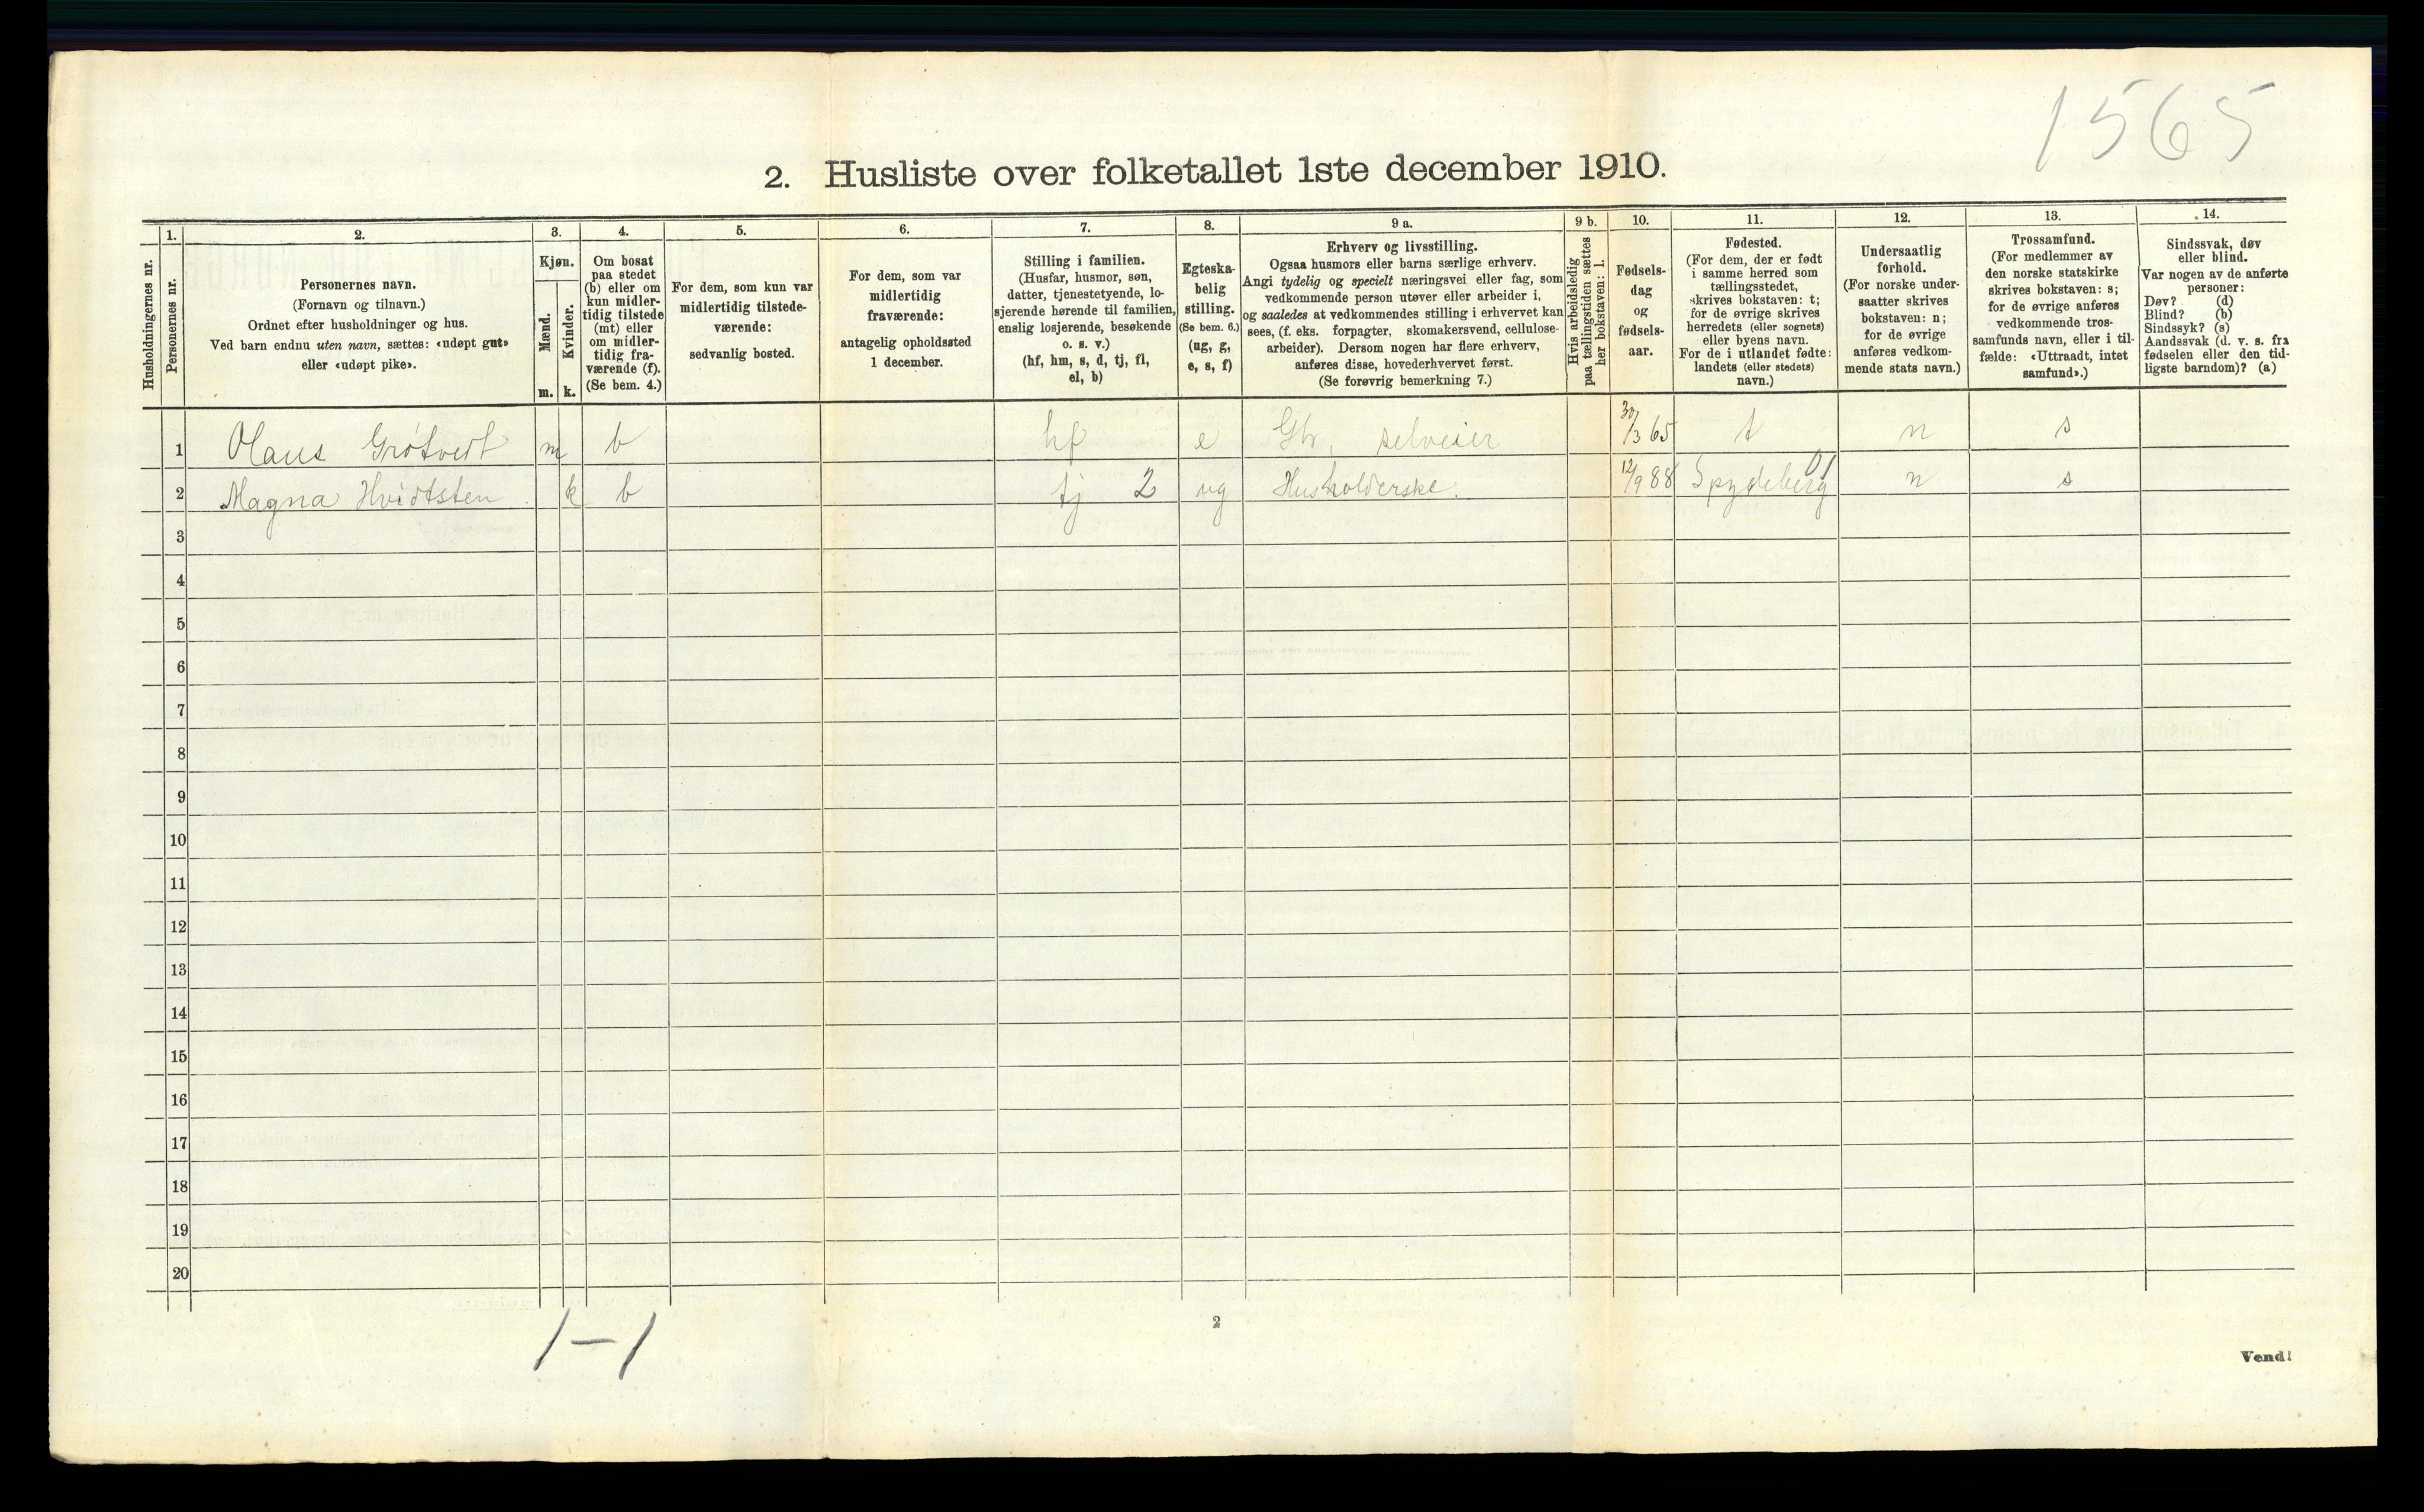 1565
2. Husliste over folketallet 1ste december 1910.
Husholdningernes nr.
1.
Personernes nr.
2.
Personernes navn.
(Fornavn og tilnavn.)
Ordnet efter husholdninger og hus.
Ved barn endnu uten navn, sættes: «udøpt gut»
eller «udøpt pike».
3.
Kjøn.
Mænd.
Kvinder.
m. k.
4.
Om bosat
paa stedet
(b) eller om
kun midler-
tidig tilstede
(mt) eller
om midler-
tidig fra-
værende (f).
(Se bem. 4.)
5.
For dem, som kun var
midlertidig tilstede-
værende:
sedvanlig bosted.
6.
For dem, som var
midlertidig
fraværende:
antagelig opholdssted
1 december.
7.
Stilling i familien.
(Husfar, husmor, søn,
datter, tjenestetyende, lo-
sjerende hørende til familien,
enslig losjerende, besøkende
o. s. v.)
(hf, hm, s, d, tj, fl,
el, b)
8.
Egteska-
belig
stilling.
(Se bem. 6.)
(ug, g,
e, s, f)
9 a.
Erhverv og livsstilling.
Ogsaa husmors eller barns særlige erhverv.
Angi tydelig og specielt næringsvei eller fag, som
vedkommende person utøver eller arbeider i,
og saaledes at vedkommendes stilling i erhvervet kan
sees, (f. eks. forpagter, skomakersvend, cellulose-
arbeider). Dersom nogen har flere erhverv,
anføres disse, hovederhvervet først.
(Se forøvrig bemerkning 7.)
9 b.
Hvis arbeidsledig
paa tællingstiden sættes
her bokstaven: l.
10.
Fødsels-
dag
og
fødsels-
aar.
11.
Fødested.
(For dem, der er født
i samme herred som
tællingsstedet,
skrives bokstaven: t;
for de øvrige skrives
herredets (eller sognets)
eller byens navn.
For de i utlandet fødte:
landets (eller stedets)
navn.)
12.
Undersaatlig
forhold.
(For norske under-
saatter skrives
bokstaven: n;
for de øvrige
anføres vedkom-
mende stats navn.)
13.
Trossamfund.
(For medlemmer av
den norske statskirke
skrives bokstaven: s;
for de øvrige anføres
vedkommende tros-
samfunds navn, eller i til-
fælde: «Uttraadt, intet
samfund».)
14.
Sindssvak, døv
eller blind.
Var nogen av de anførte
personer:
Døv? (d)
Blind? (b)
Sindssyk? (s)
Aandssvak (d. v. s. fra
fødselen eller den tid-
ligste barndom)? (a)
1 Olaus Grøtvedt m b hf e Gbr. selveier 30/3 65 t n s
2 Magna Hvidtsten k b tj 2 ug Husholderske. 12/9 88 Spydeberg 01 n s
3
4
5
6
7
8
9
10
11
12
13
14
15
16
17
18
19
20
1-1
2
Vend!